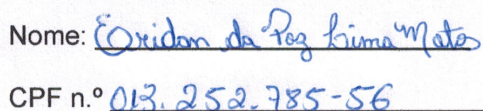 Nome: Eridan da Paz Lima Matos
CPF n.º 013.252.785-56